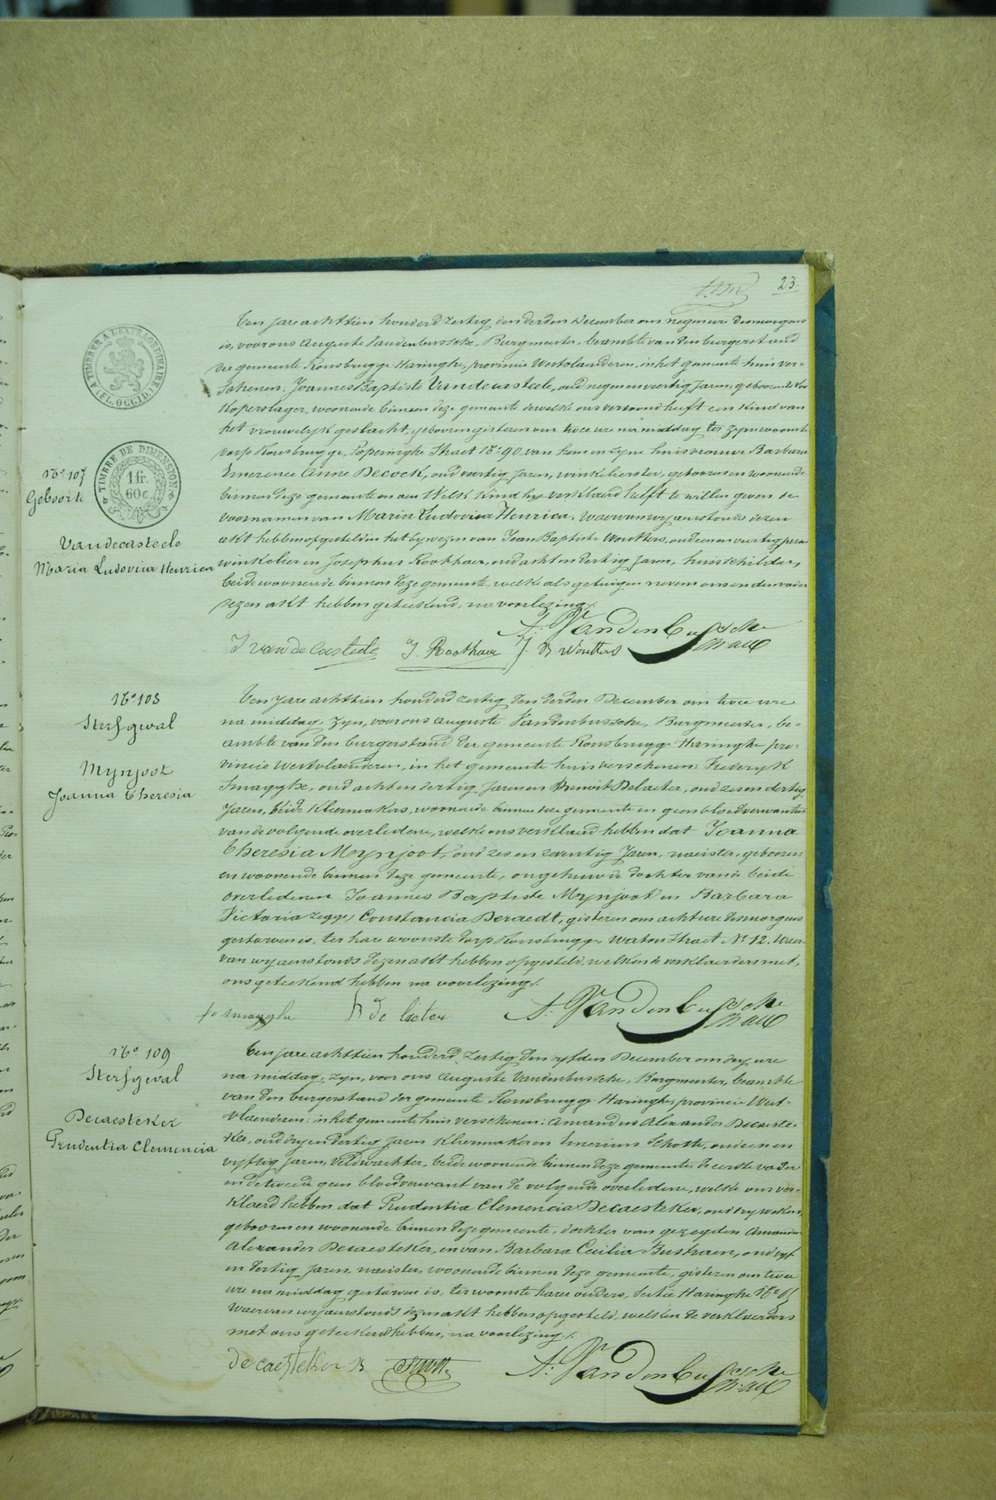 23
TIMBRE A L'EXTRAORDINAIRE
FL. OCCID.
TIMBRE DE DIMENSION
1 fr.
60 c.
No 107
Geboorte
Vandecasteele
Maria Ludovica Henrica
Een jare achttien honderd zestig den derden December om negen ure des morgens
is, voor ons Auguste Vandenbussche, Burgmeester, beambte van den burgerstand
der gemeente Rousbrugge Haringhe, provincie Westvlaanderen, in het gemeente huis ver-
schenen: Joannes Baptiste Vandecasteele, oud negenenveertig Jaren, geboren te
Koperslager, woonende binnen deze gemeente dewelke ons vertoond heeft een kind van
het vrouwelijk geslacht, geboren gisteren om twee ure na middag ter zyne woonste
dorp Rousbrugge, Poperinghe Straet No 90, van hem en zyne huisvrouw Barbara
Emerence Anne Decock, oud veertig Jaren, winkelierster, geboren en woonende
binnen deze gemeente en aen welk kind hy verklaerd heeft te willen geven de
voornamen van Maria Ludovica Henrica. Waervan wy aenstonds dezen
akt hebben opgesteld in het bywezen van Jean Baptiste Woutters, oud en veertig Jaren
winkelier en Josephus Rookhaer, oud acht en dertig Jaren, huisschilder,
beide woonende binnen deze gemeente, welke als getuigen nevens ons ondervader
dezen akt hebben geteekend, na voorlezing.
J vande Casteele J. Rookhaer J B Woutters A. Vandenbussche
No 108
Sterfgeval
Mynjoot
Joanna Theresia
Een jare achttien honderd zestig den derden December om twee ure
na middag, zyn, voor ons Auguste Vandenbussche, Burgmeester, be-
ambte van den burgerstand der gemeente Rousbrugge Haringhe pro-
vincie Westvlaanderen, in het gemeente huis verschenen: Frederyk
Smagghe, oud acht en dertig Jaren en Benoit Delaeter, oud zes en dertig
Jaren, beide kleermakers, woonende binnen deze gemeente en geen bloedverwanten
van de volgende overledene, welke ons verklaerd hebben dat Joanna
Theresia Mynjoot, oud zes en zeventig Jaren, naeister, geboren
en woonende binnen deze gemeente, ongehuwde dochter van de beide
overledenen Joannes Baptiste Mynjoot en Barbara
Victoria zegge Constancia Deraedt, gisteren om acht ure des morgens
gestorven is, ter hare woonste dorp Rousbrugge Waton Straet No 12. Waer-
van wy aenstonds dezen akt hebben opgesteld, welken de verklaerders met
ons geteekend hebben na voorlezing.
fr Smagghe B De laeter A. Vandenbussche
No 109
Sterfgeval
Decaesteker
Prudentia Clemencia
Een jare achttien honderd zestig den vyfden December om dry ure
na middag, zyn, voor ons Auguste Vandenbussche, Burgmeester, beambte
van den burgerstand der gemeente Rousbrugge Haringhe provincie West-
vlaanderen in het gemeente huis verschenen: Amandus Alexander Decaeste-
ker, oud dry en dertig Jaren kleermaker en Smerinus Schotte, oud een en
vyftig Jaren, Veldwachter, beide woonende binnen deze gemeente de eerste vader
en de tweede geen bloedverwant van de volgende overledene, welke ons ver-
klaerd hebben dat Prudentia Clemencia Decaesteker, oud dry weken,
geboren en woonende binnen deze gemeente, dochter van gezegden Amandus
Alexander Decaesteker, en van Barbara Cecilia Bustraen, oud vyf
en dertig Jaren naeister, woonende binnen deze gemeente, gisteren om twee
ure na middag gestorven is, ter woonste harer ouders, Sectie Haringhe
Waervan wy aenstonds dezen akt hebben opgesteld, welken de verklaerders
met ons geteekend hebben, na voorlezing.
decaesteker A. Vandenbussche